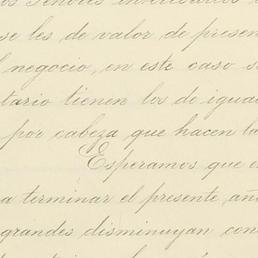 se les de valor de presen
l negocio, en este caso s
tario tienen los de igua
por cabeza que hacen la
Esperamos que e
a terminar el presente añ
grandes disminuyan con